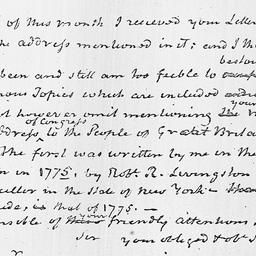 of this month I received your Letter
he address mentioned in it; and I th
bestow
been and still am too feeble to
ous Topics which are included
your
t however omit mentioning
of Congress
ddress, to the People of Great Brita
The first was written by me in the
n in 1775, by Robt. R. Livingston
cellor in the State of New York -
ede, is that of 1775. -
your
nsible of friendly attentions,
Sir your obliged & ob.